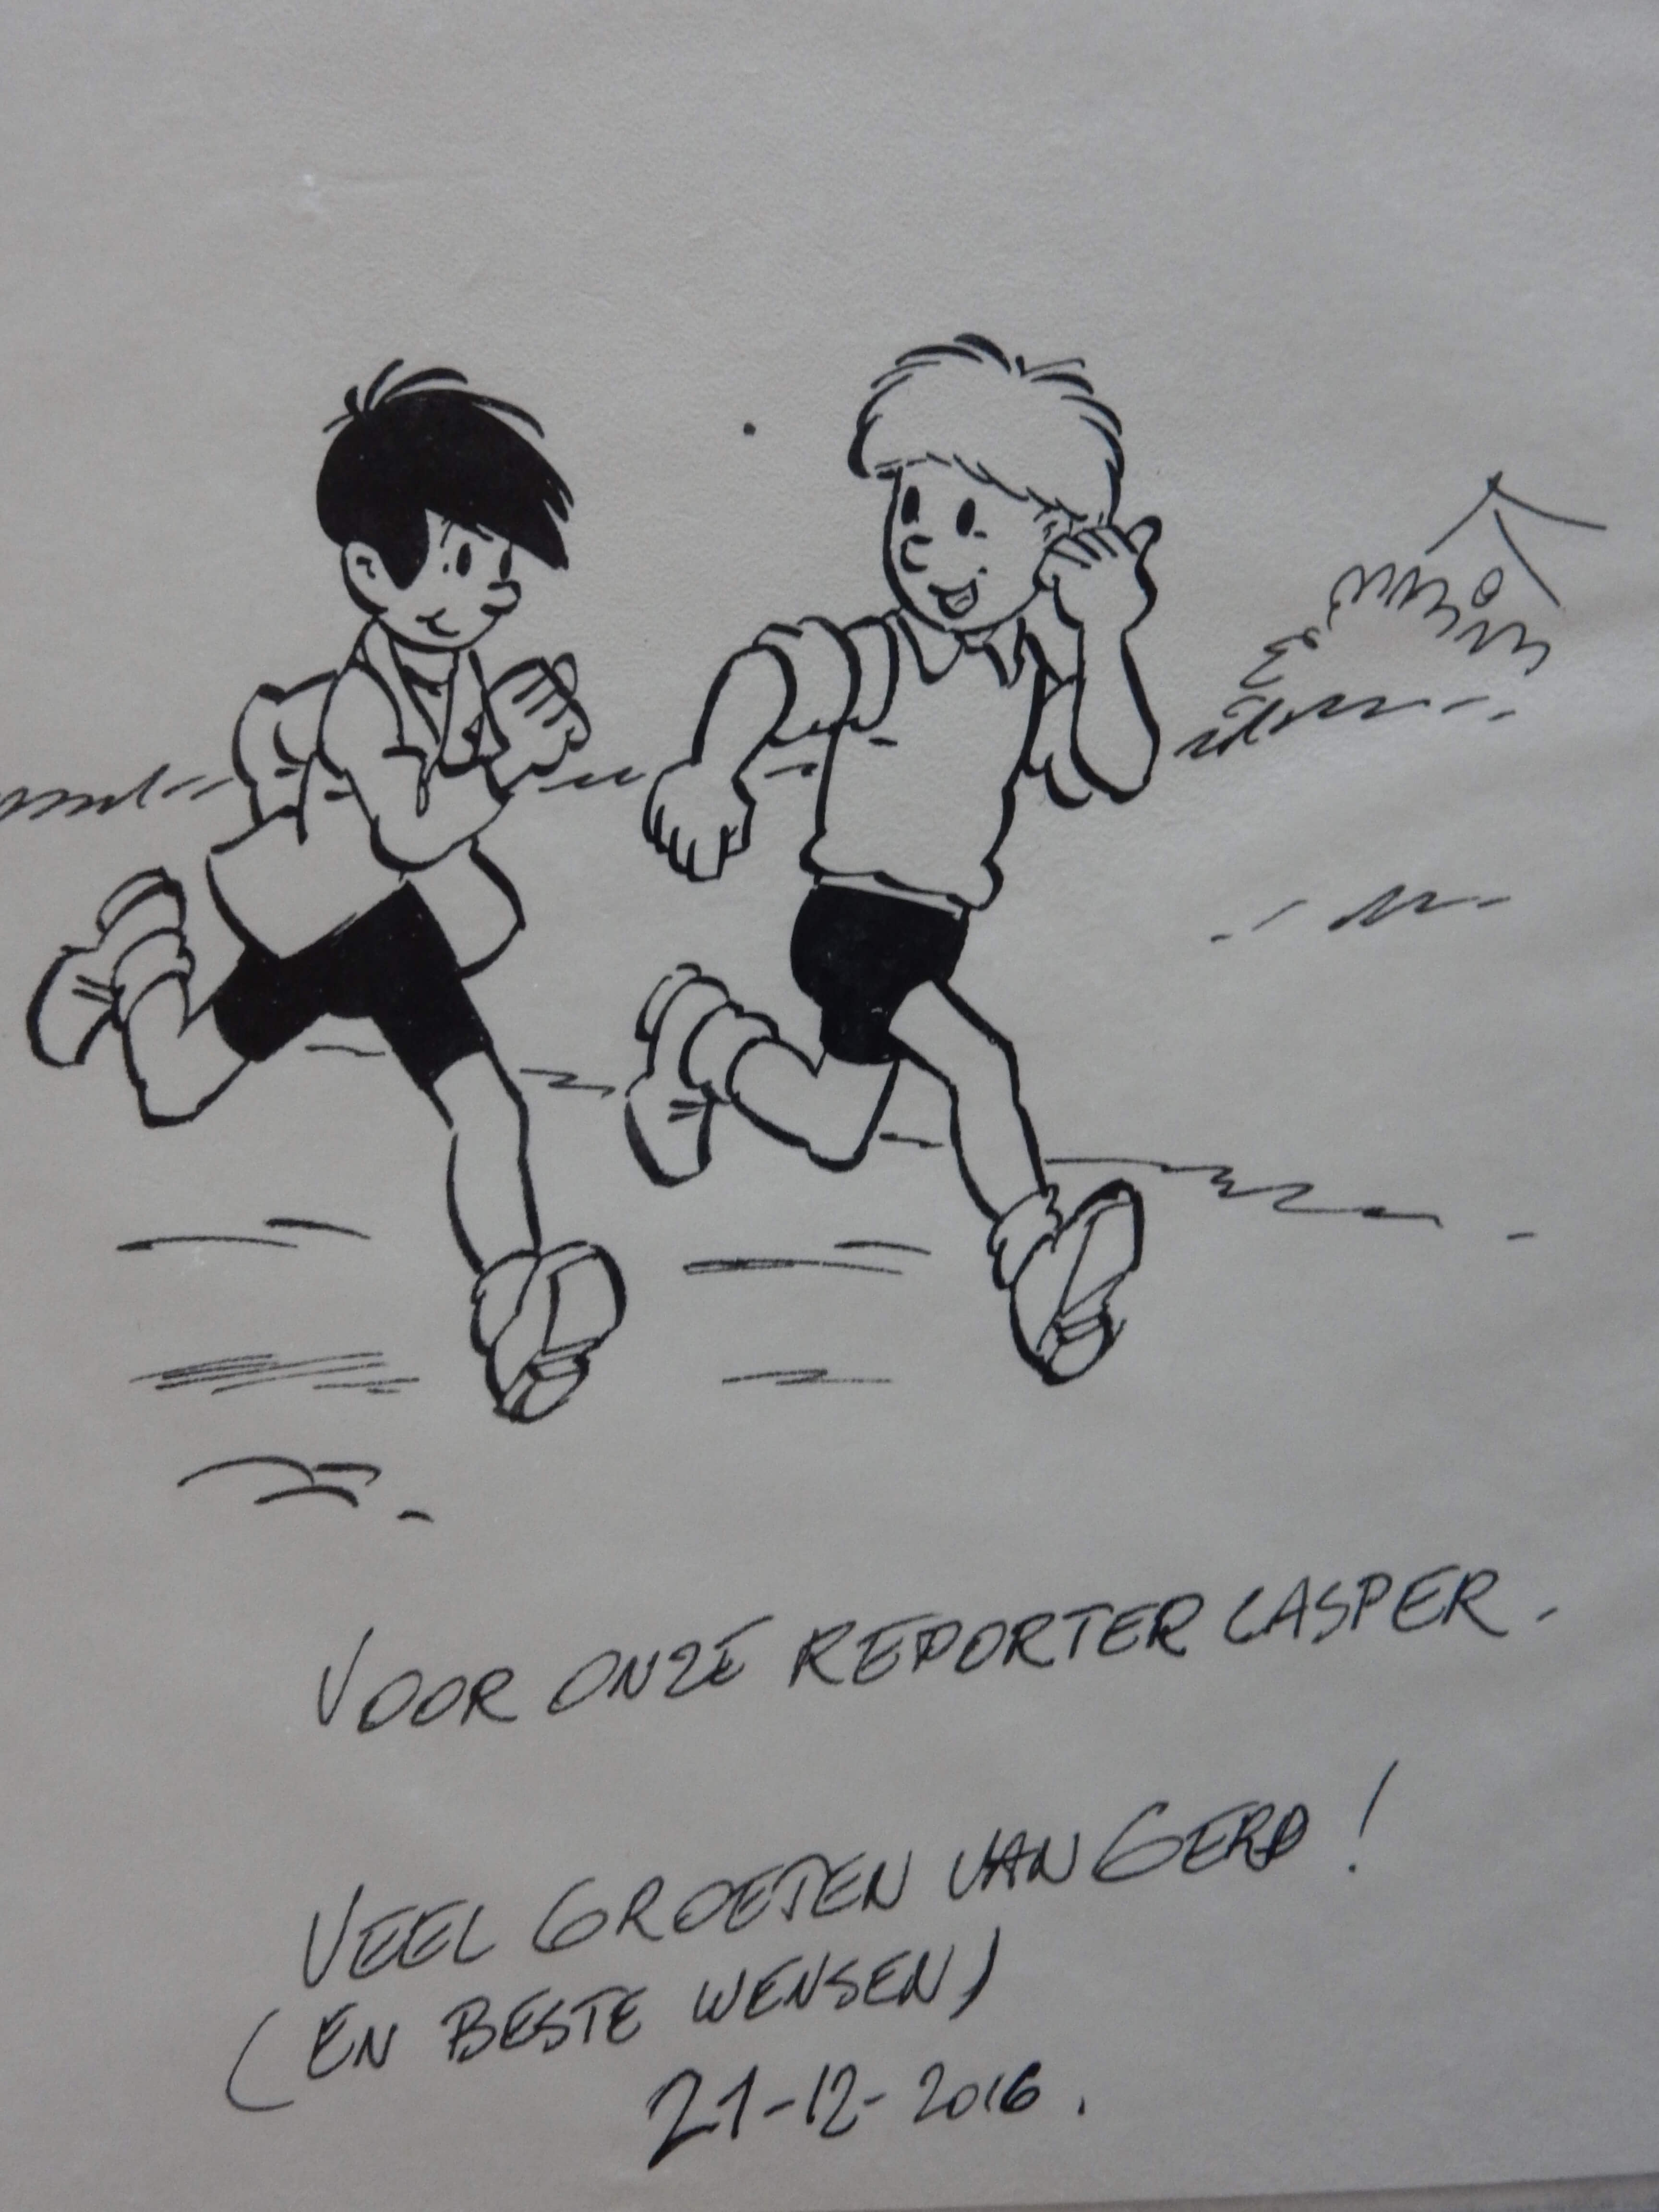 VOOR ONZE REPORTER CASPER.
VEEL GROETEN VAN GERD!
(EN BESTE WENSEN)
21-12-2016.